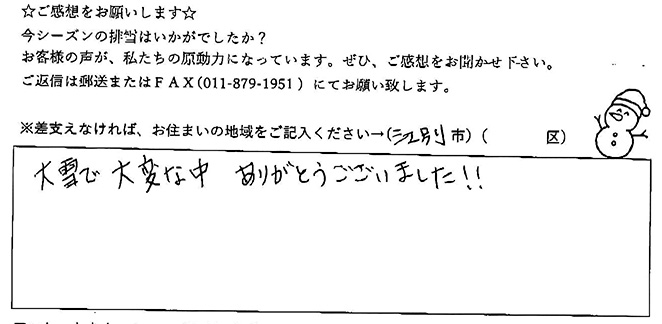 ☆ご感想をお願いします☆
今シーズンの排当はいかがでしたか？
お客様の声が、私たちの原動力になっています。ぜひ、ご感想をお聞かせ下さい。
ご返信は郵送またはＦＡＸ(011-879-1951）にてお願い致します。
※差支えなければ、お住まいの地域をご記入ください→(江別市）（　　　区）
大雪で 大変な中 ありがとうございました!!